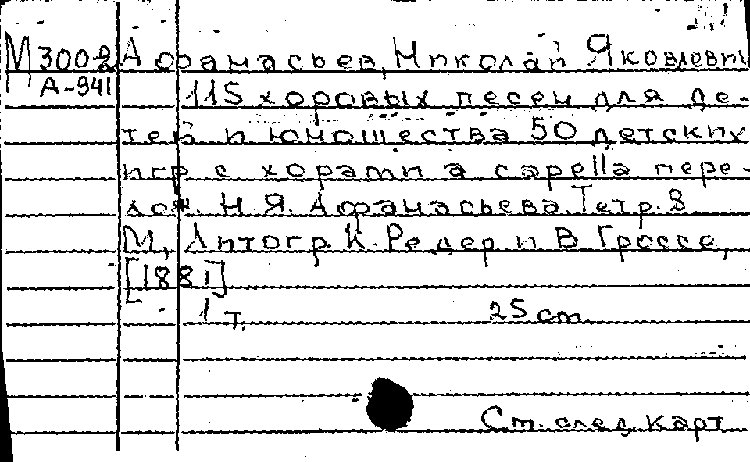 М 3002 Афанасьев, Николай Яковлевич
А-941 115 хоровых песен для де-
тей и юношества 50 детских
игр с хорами a capella пере-
лож. Н. Я. Афанасьева. Тетр. 8
М, Литогр. К. Редер и В. Гроссе,
[1881]
1 т. 25 cm.
См. след. карт